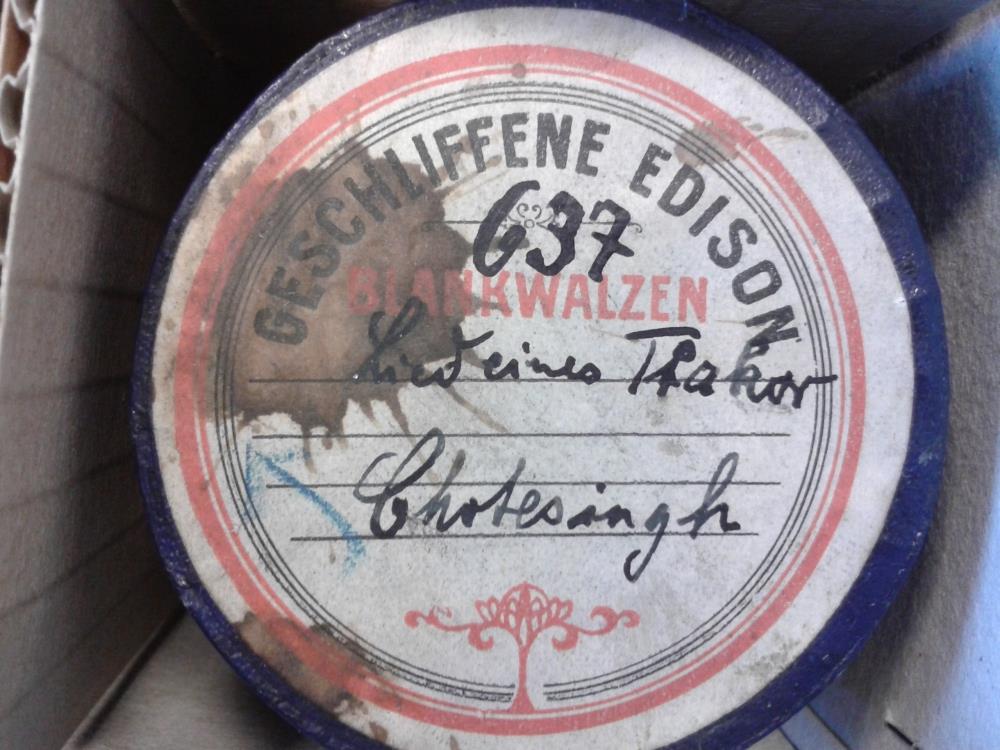 GESCHLIFFENE EDISON
637
BLANKWALZEN
Lied eines Thakor
Chotesingh